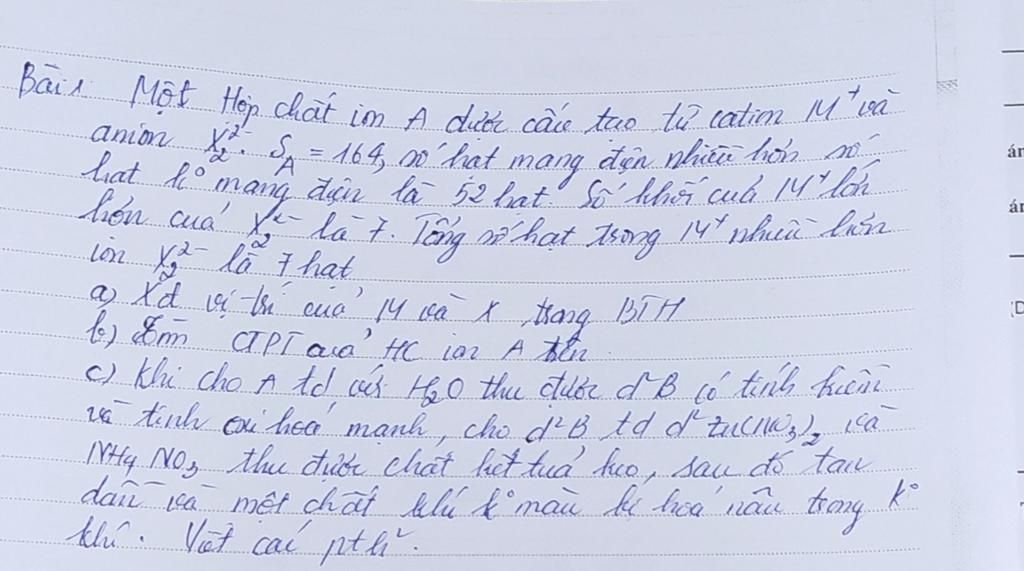 Bài 1 Một Hợp chất ion A được cấu tạo từ cation M⁺ và
anion X₂²⁻. S_A = 164, số hạt mang điện nhiều hơn số
hạt k° mang điện là 52 hạt. Số khối của M⁺ lớn
hơn của X₂²⁻ là 7. Tổng số hạt trong M⁺ nhiều hơn
ion X₂²⁻ là 7 hạt
a) Xđ vị trí của M và X trong BTH
b) Tìm CTPT của HC ion A trên
c) Khi cho A td với H₂O thu được d² B có tính kiềm
và tính oxi hoá mạnh, cho d² B td d² Zn(NO₃)₂ và
NH₄NO₃ thu được chất kết tủa keo, sau đó tan
dần và một chất khí k° màu bị hoá nâu trong k°
khí. Viết các pth².
án
án
(D